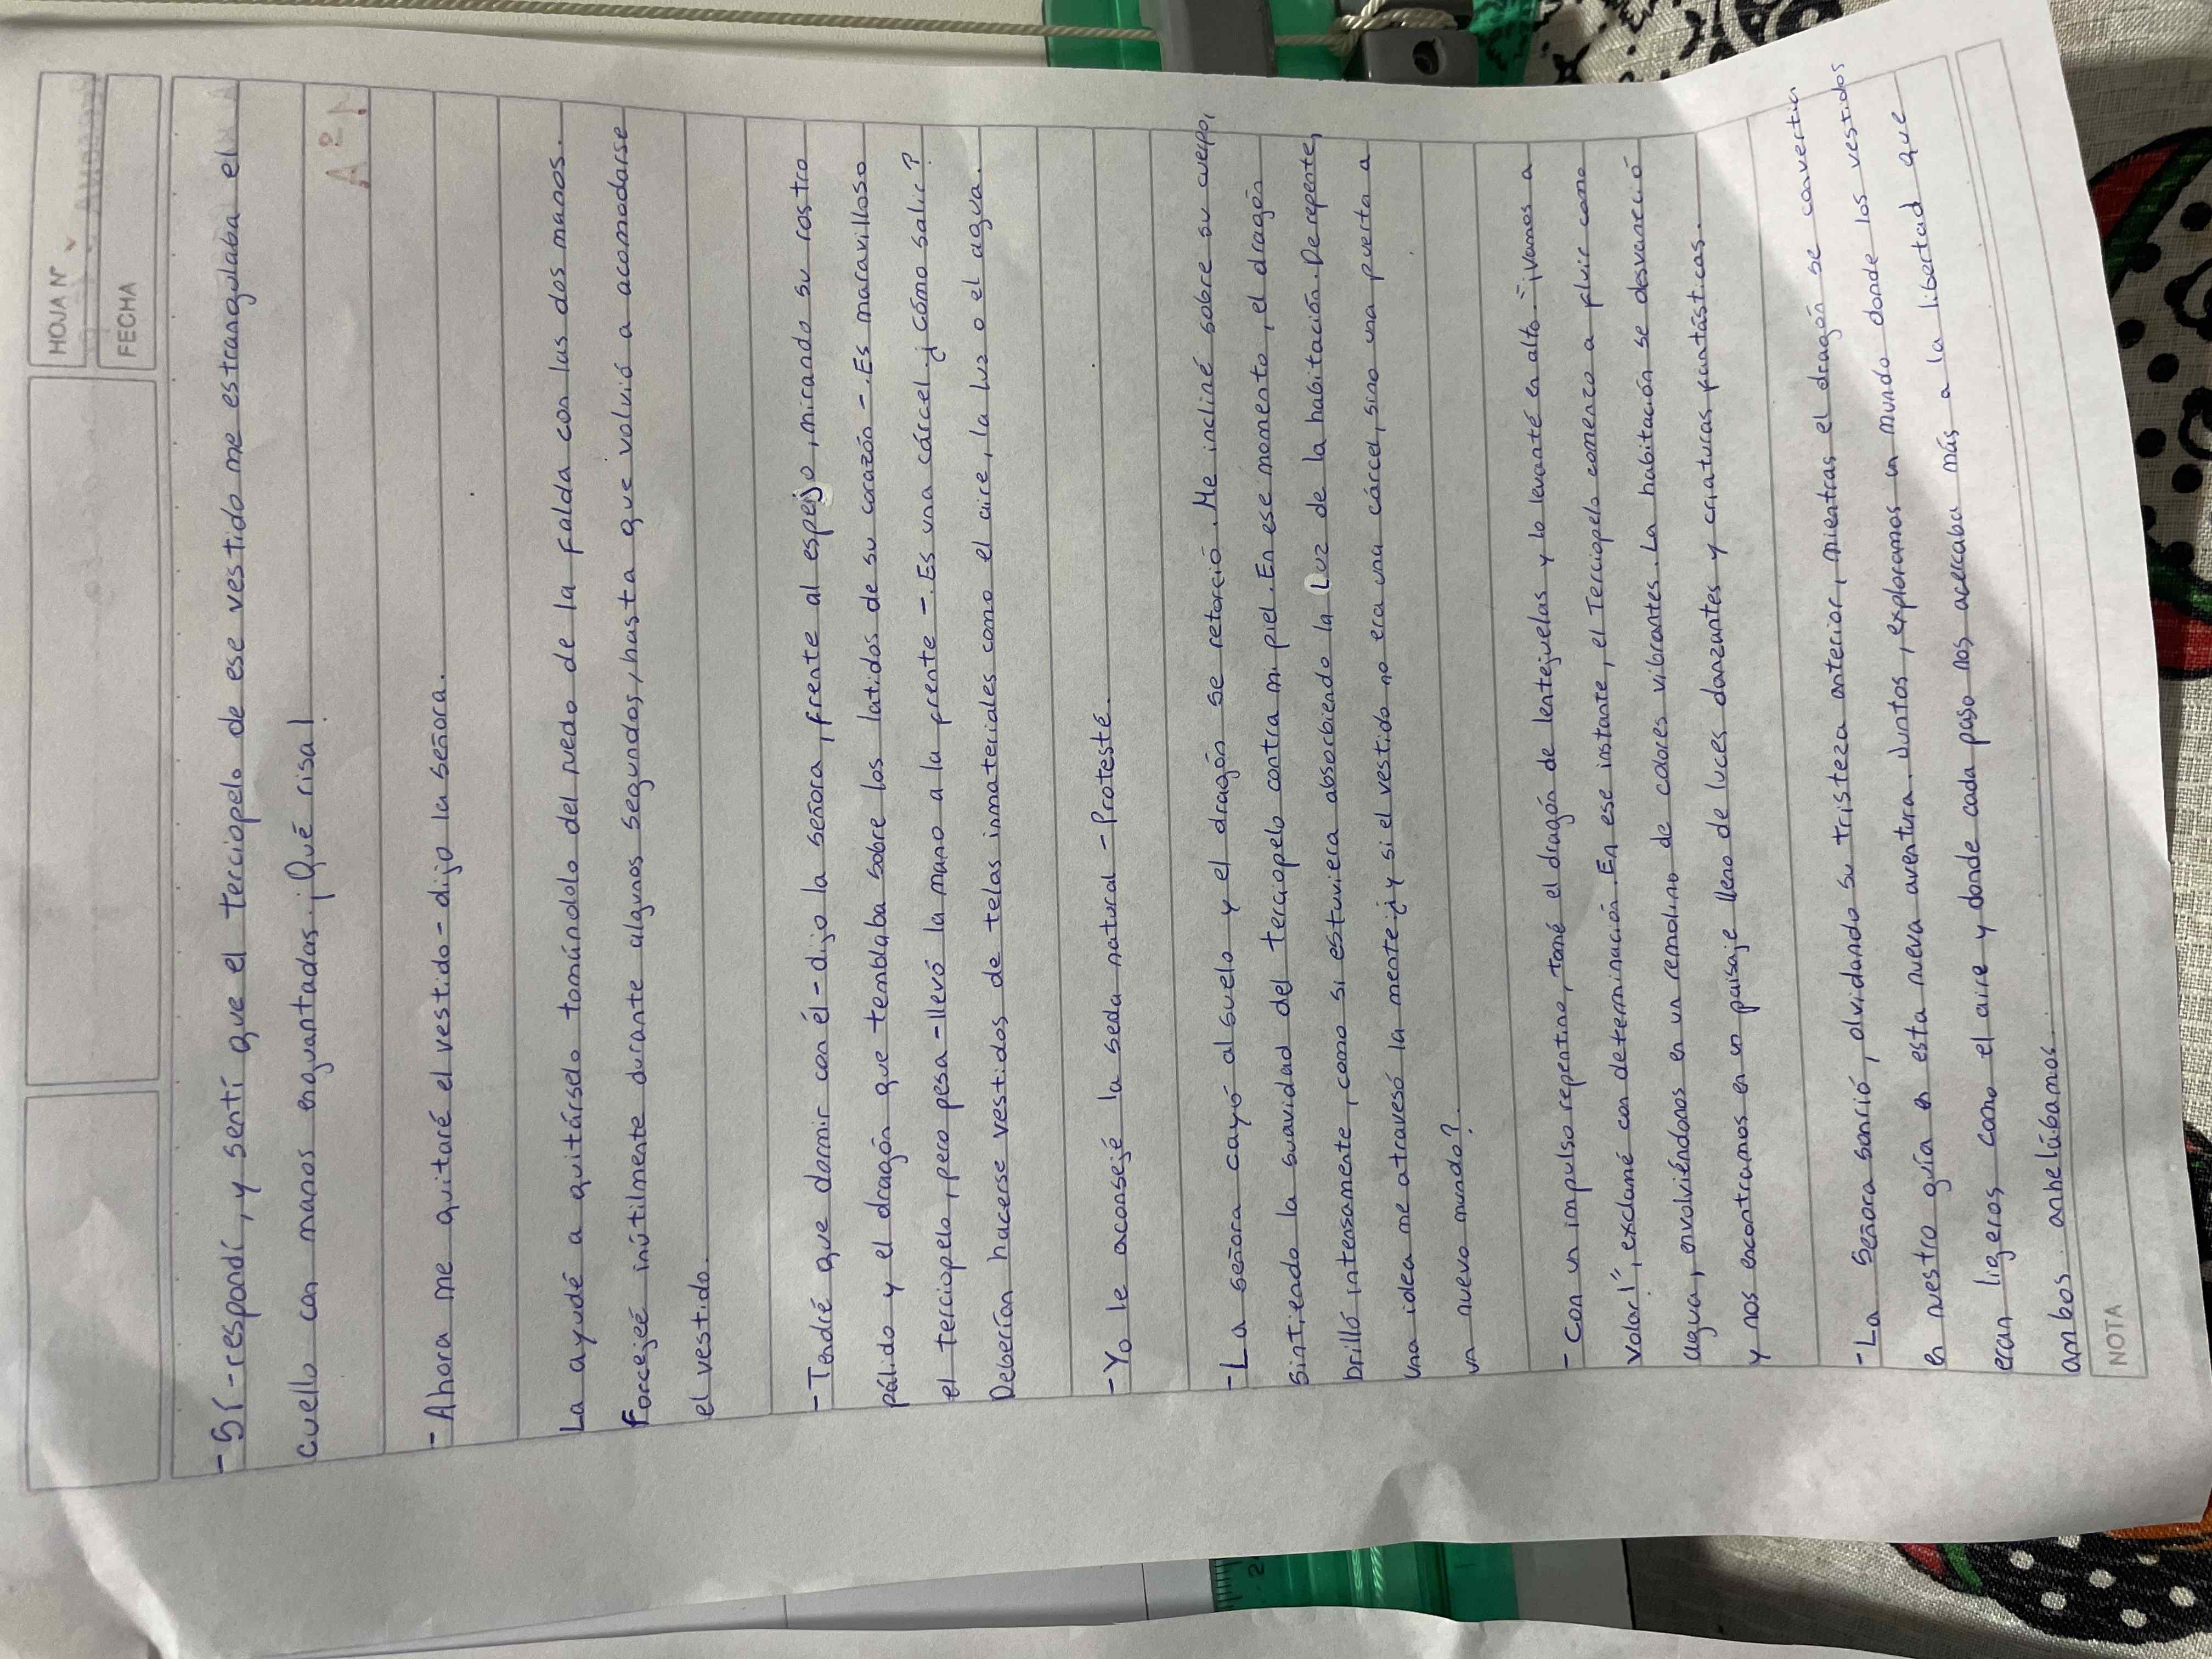 HOJA Nº
FECHA
-Sí -respondí, y sentí que el terciopelo de ese vestido me estrangulaba el
cuello con manos enguantadas. ¡Qué risa!
-Ahora me quitaré el vestido- dijo la señora.
La ayudé a quitárselo tomándolo del ruedo de la falda con las dos manos.
Forcejeé inútilmente durante algunos segundos, hasta que volvió a acomodarse
el vestido.
-Tendré que dormir con él- dijo la señora, frente al espejo, mirando su rostro
pálido y el dragón que temblaba sobre los latidos de su corazón -. Es maravilloso
el terciopelo, pero pesa -llevó la mano a la frente -. Es una cárcel. ¿Cómo salir?
Deberían hacerse vestidos de telas inmateriales como el aire, la luz o el agua.
-Yo le aconsejé la seda natural -Protesté.
-La señora cayó al suelo y el dragón se retorció. Me incliné sobre su cuerpo,
sintiendo la suavidad del terciopelo contra mi piel. En ese momento, el dragón
brilló intensamente, como si estuviera absorbiendo la Luz de la habitación. De repente,
una idea me atravesó la mente: ¿y si el vestido no era una cárcel, sino una puerta a
un nuevo mundo?
-Con un impulso repentino, tomé el dragón de lentejuelas y lo levanté en alto -¡vamos a
volar!", exclamé con determinación. En ese instante, el Terciopelo comenzo a fluir como
agua, envolviéndonos en un remolino de colores vibrantes. La habitación se desvaneció
y nos encontramos en un paisaje lleno de luces danzantes y criaturas fantásticas.
-La Señora sonrió, olvidando su tristeza anterior, mientras el dragón se convertia
en nuestro guía en esta nueva aventura. Juntos, exploramos un mundo donde los vestidos
eran ligeros como el aire y donde cada paso nos acercaba más a la libertad que
ambos anhelábamos.
NOTA